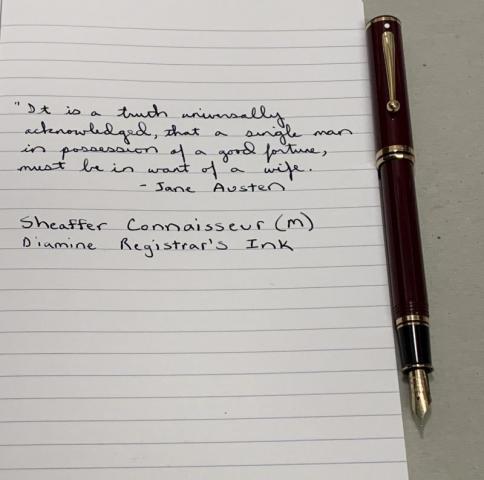 "It is a truth universally
acknowledged, that a single man
in possession of a good fortune,
must be in want of a wife.
- Jane Austen
Sheaffer Connaisseur (M)
Diamine Registrar's Ink